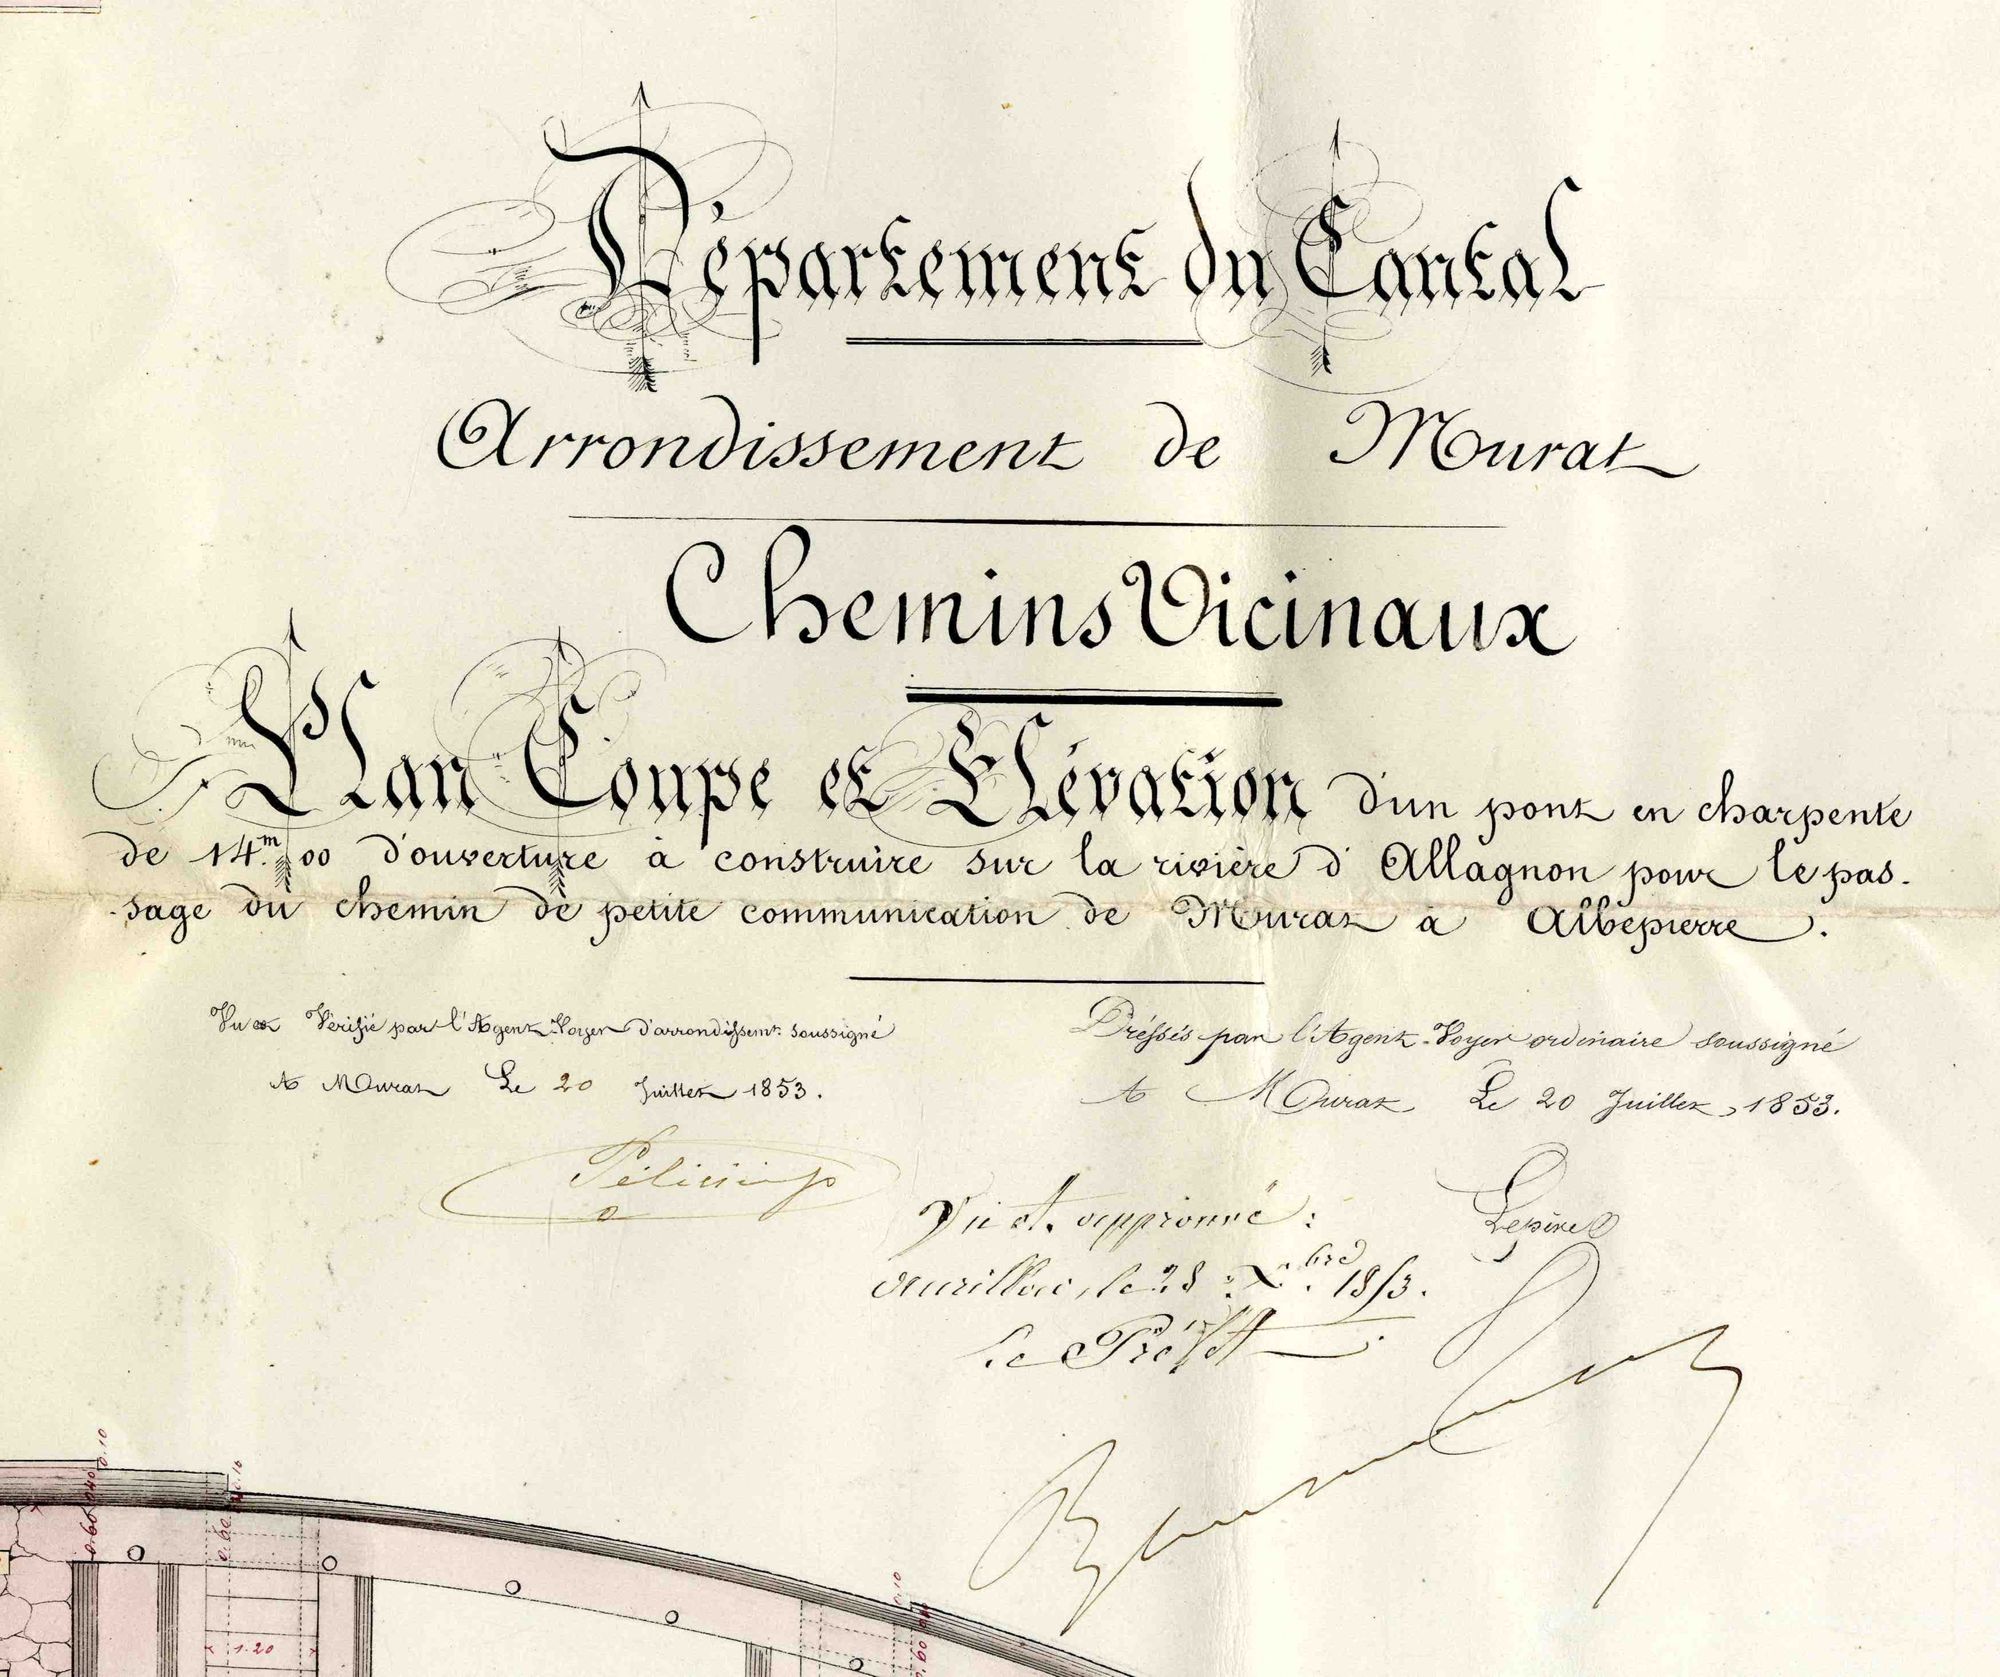 Département du Cantal
Arrondissement de Murat
Chemins Vicinaux
Plan Coupe et Elévation d'un pont en charpente
de 14.m 00 d'ouverture à construire sur la rivière d'Allagnon pour le pas-
-sage du chemin de petite communication de Murat à Albepierre.
Vu et Vérifié par l'Agent-Voyer d'arrondissemt. soussigné
A Murat Le 20 Juillet 1853.
Dréssés par l'Agent-Voyer ordinaire soussigné
A Murat Le 20 Juillet, 1853.
Vu et approuvé :
Aurillac, le 28 Xbre 1853.
Le Préfet
0.60 0.40 0.10
0.60 0.10
1.20
0.60 0.10